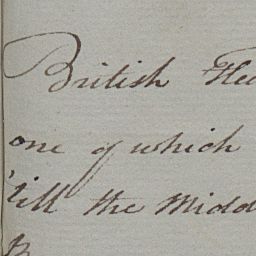 British
one of which
'till the Midd